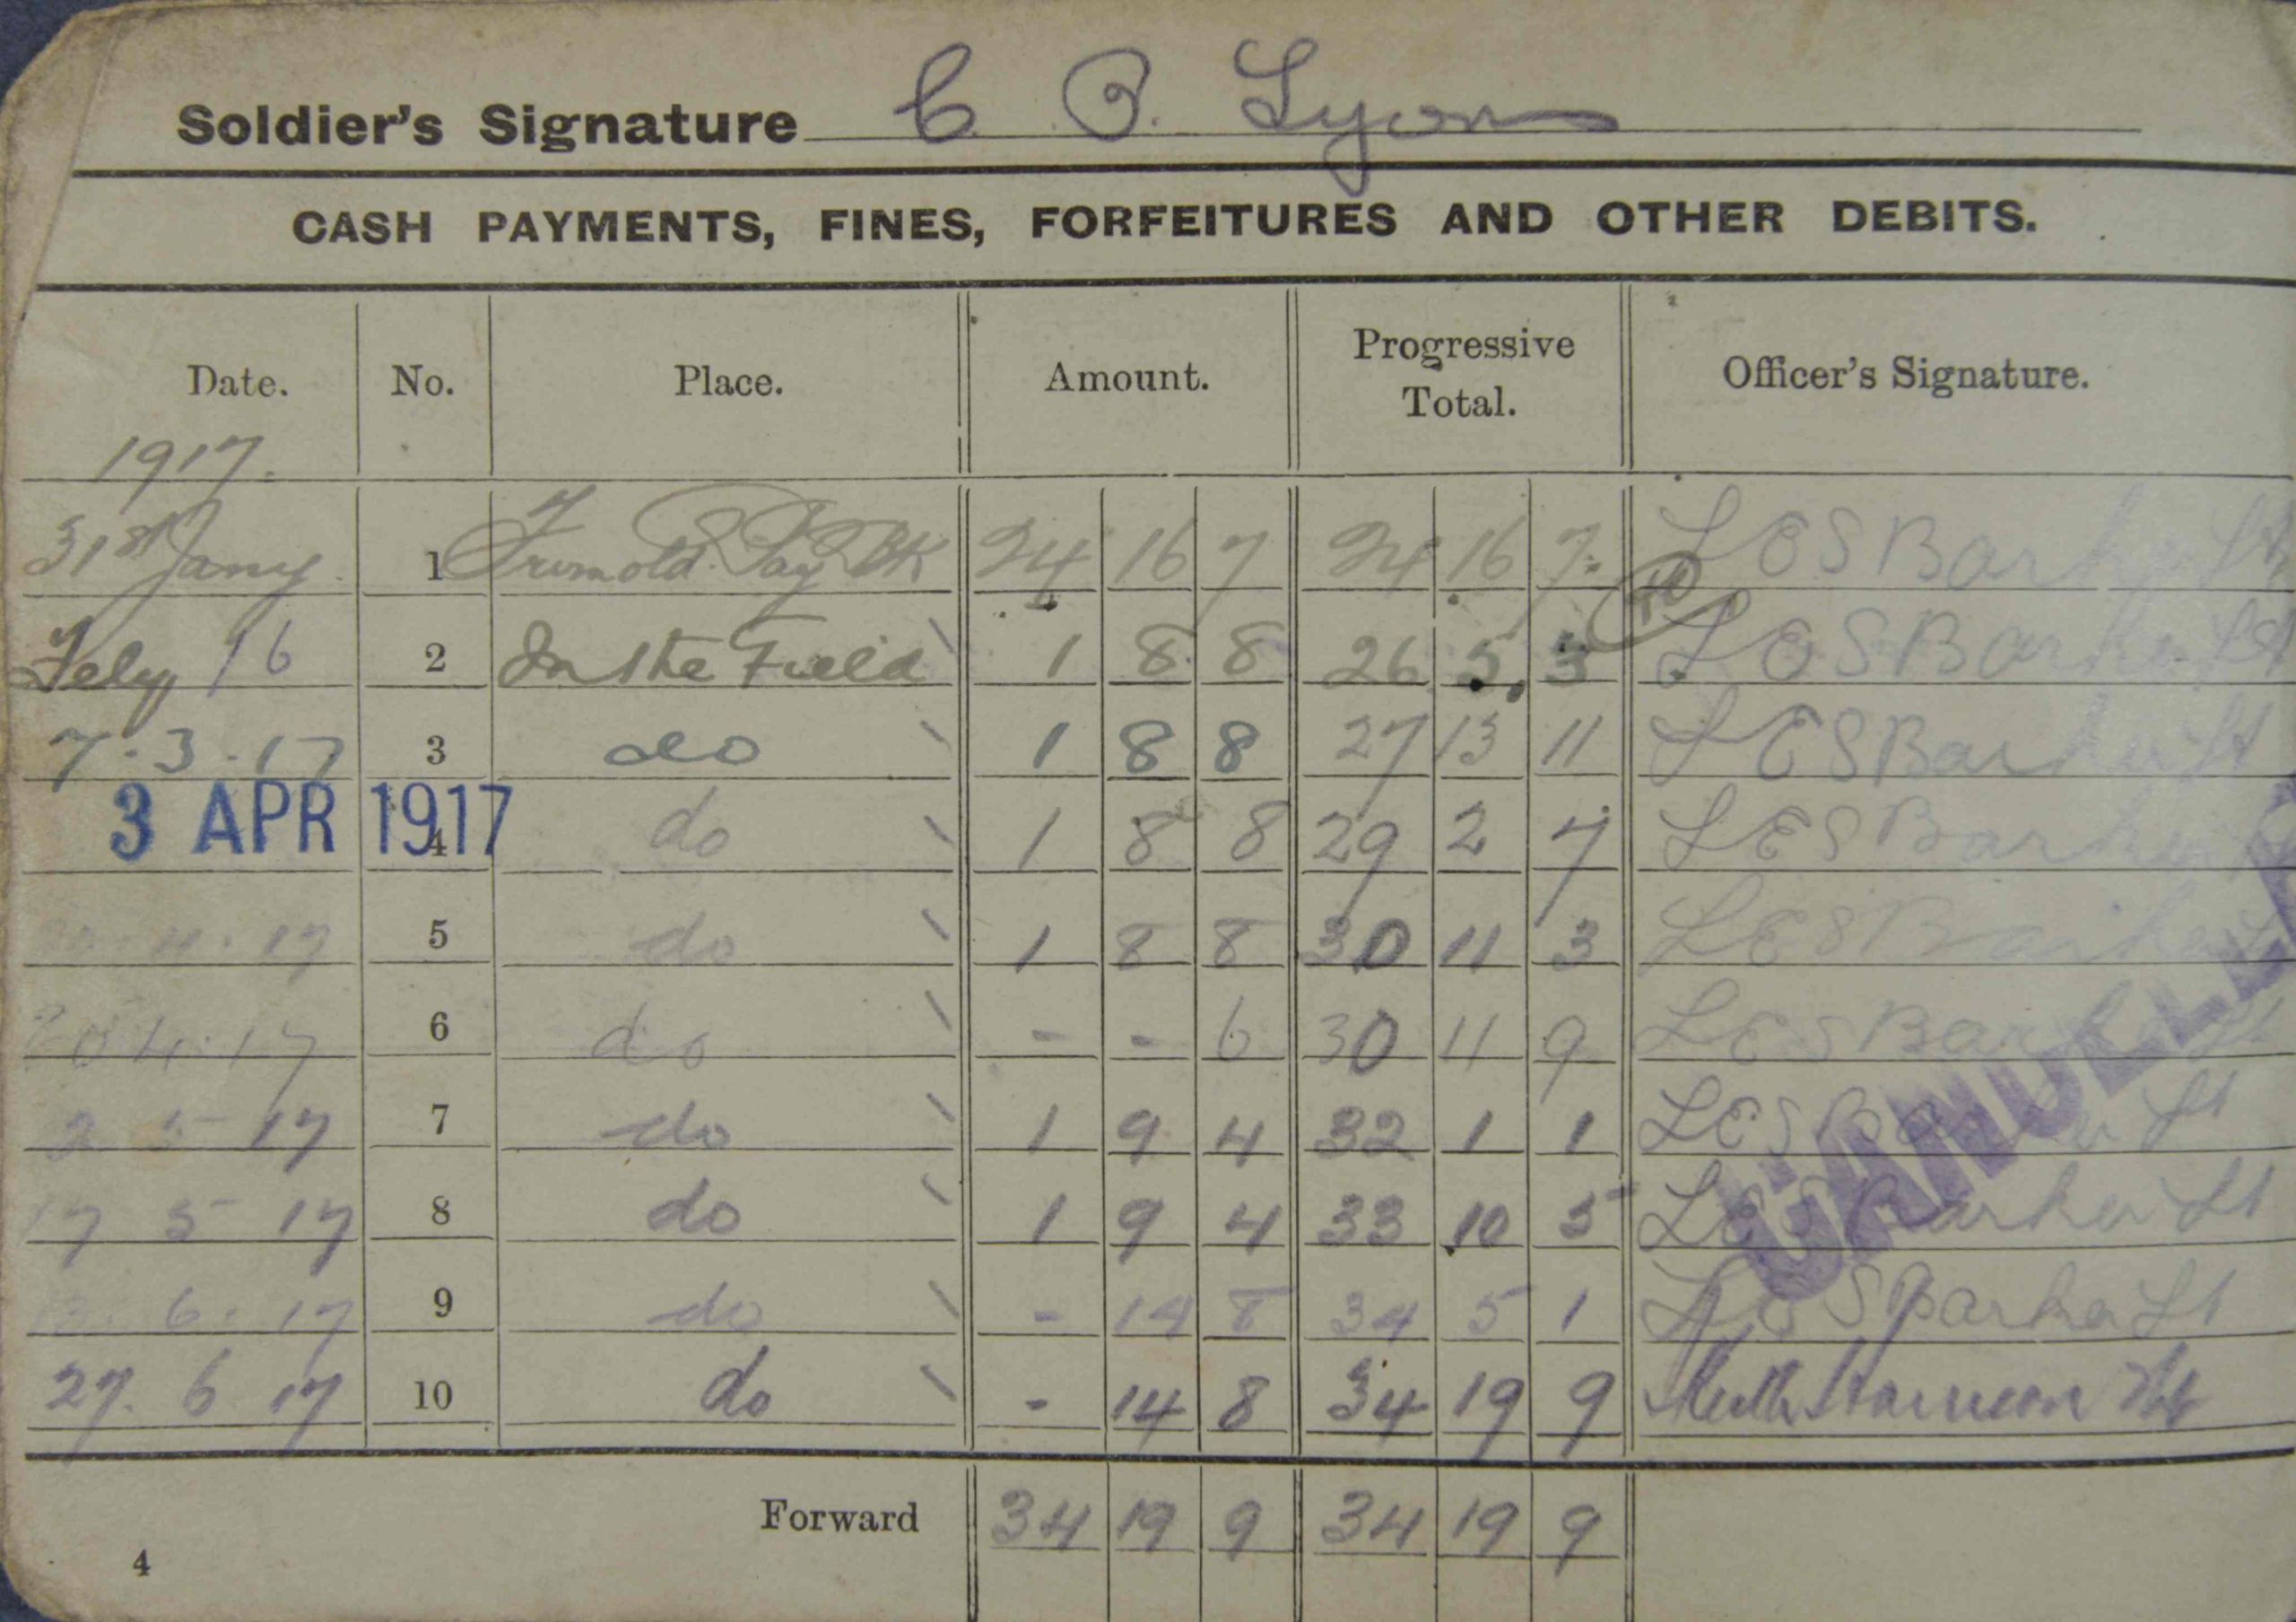 Soldier's Signature C. P. Lyons
CASH PAYMENTS, FINES, FORFEITURES AND OTHER DEBITS.
Date. No. Place. Amount. Progressive Total. Officer's Signature.
1917.
31st Jany. 1 From old Pay Bk 24 16 7 24 16 7 L E S Barker Lt
Feby 16 2 In the Field 1 8 8 26 5 3 L E S Barker Lt
7.3.17 3 do 1 8 8 27 13 11 L E S Barker Lt
3 APR 1917 4 do 1 8 8 29 2 7 L E S Barker
4.17 5 do 1 8 8 30 11 3 L E S Barker Lt
20 4.17 6 do - - 6 30 11 9 L E S Barker Lt
2 5 17 7 do 1 9 4 32 1 1 L E S Barker Lt
17 5 17 8 do 1 9 4 33 10 5 L E S Barker Lt
6.17 9 do - 14 8 34 5 1 L E S Barker Lt
27. 6 17 10 do - 14 8 34 19 9 Harrison
CANCELLED
Forward 34 19 9 34 19 9
4